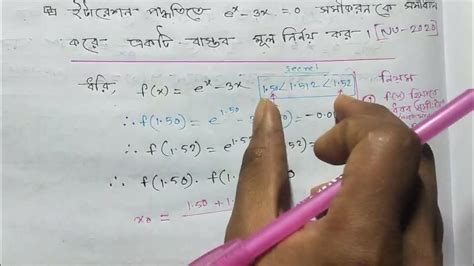 ইটারেশন পদ্ধতিতে e^x - 3x = 0 সমীকরনকে সমাধান
করে একটি বাস্তব মূল নির্নয় কর। [NU-2020]
Secret
ধরি, f(x) = e^x - 3x 1.50 < 1.512 < 1.52
নিয়ম
∴ f(1.50) = e^1.50
∴ f(1.52) = e^1.52
∴ f(1.50) . f(1.5
x₀ = 1.50 + 1.